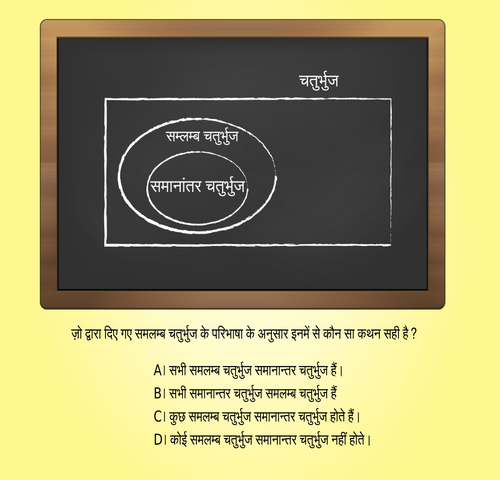 चतुर्भुज
सम्लम्ब चतुर्भुज
समानांतर चतुर्भुज
ज़ो द्वारा दिए गए समलम्ब चतुर्भुज के परिभाषा के अनुसार इनमें से कौन सा कथन सही है ?
A। सभी समलम्ब चतुर्भुज समानान्तर चतुर्भुज हैं।
B। सभी समानान्तर चतुर्भुज समलम्ब चतुर्भुज हैं
C। कुछ समलम्ब चतुर्भुज समानान्तर चतुर्भुज होते हैं।
D। कोई समलम्ब चतुर्भुज समानान्तर चतुर्भुज नहीं होते।